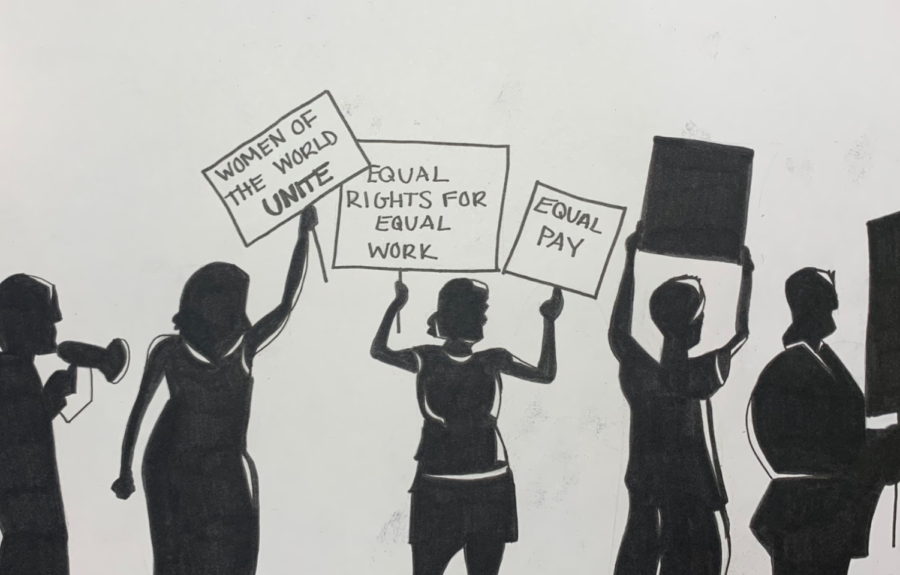 WOMEN OF
THE WORLD
UNITE
EQUAL
RIGHTS FOR
EQUAL
WORK
EQUAL
PAY